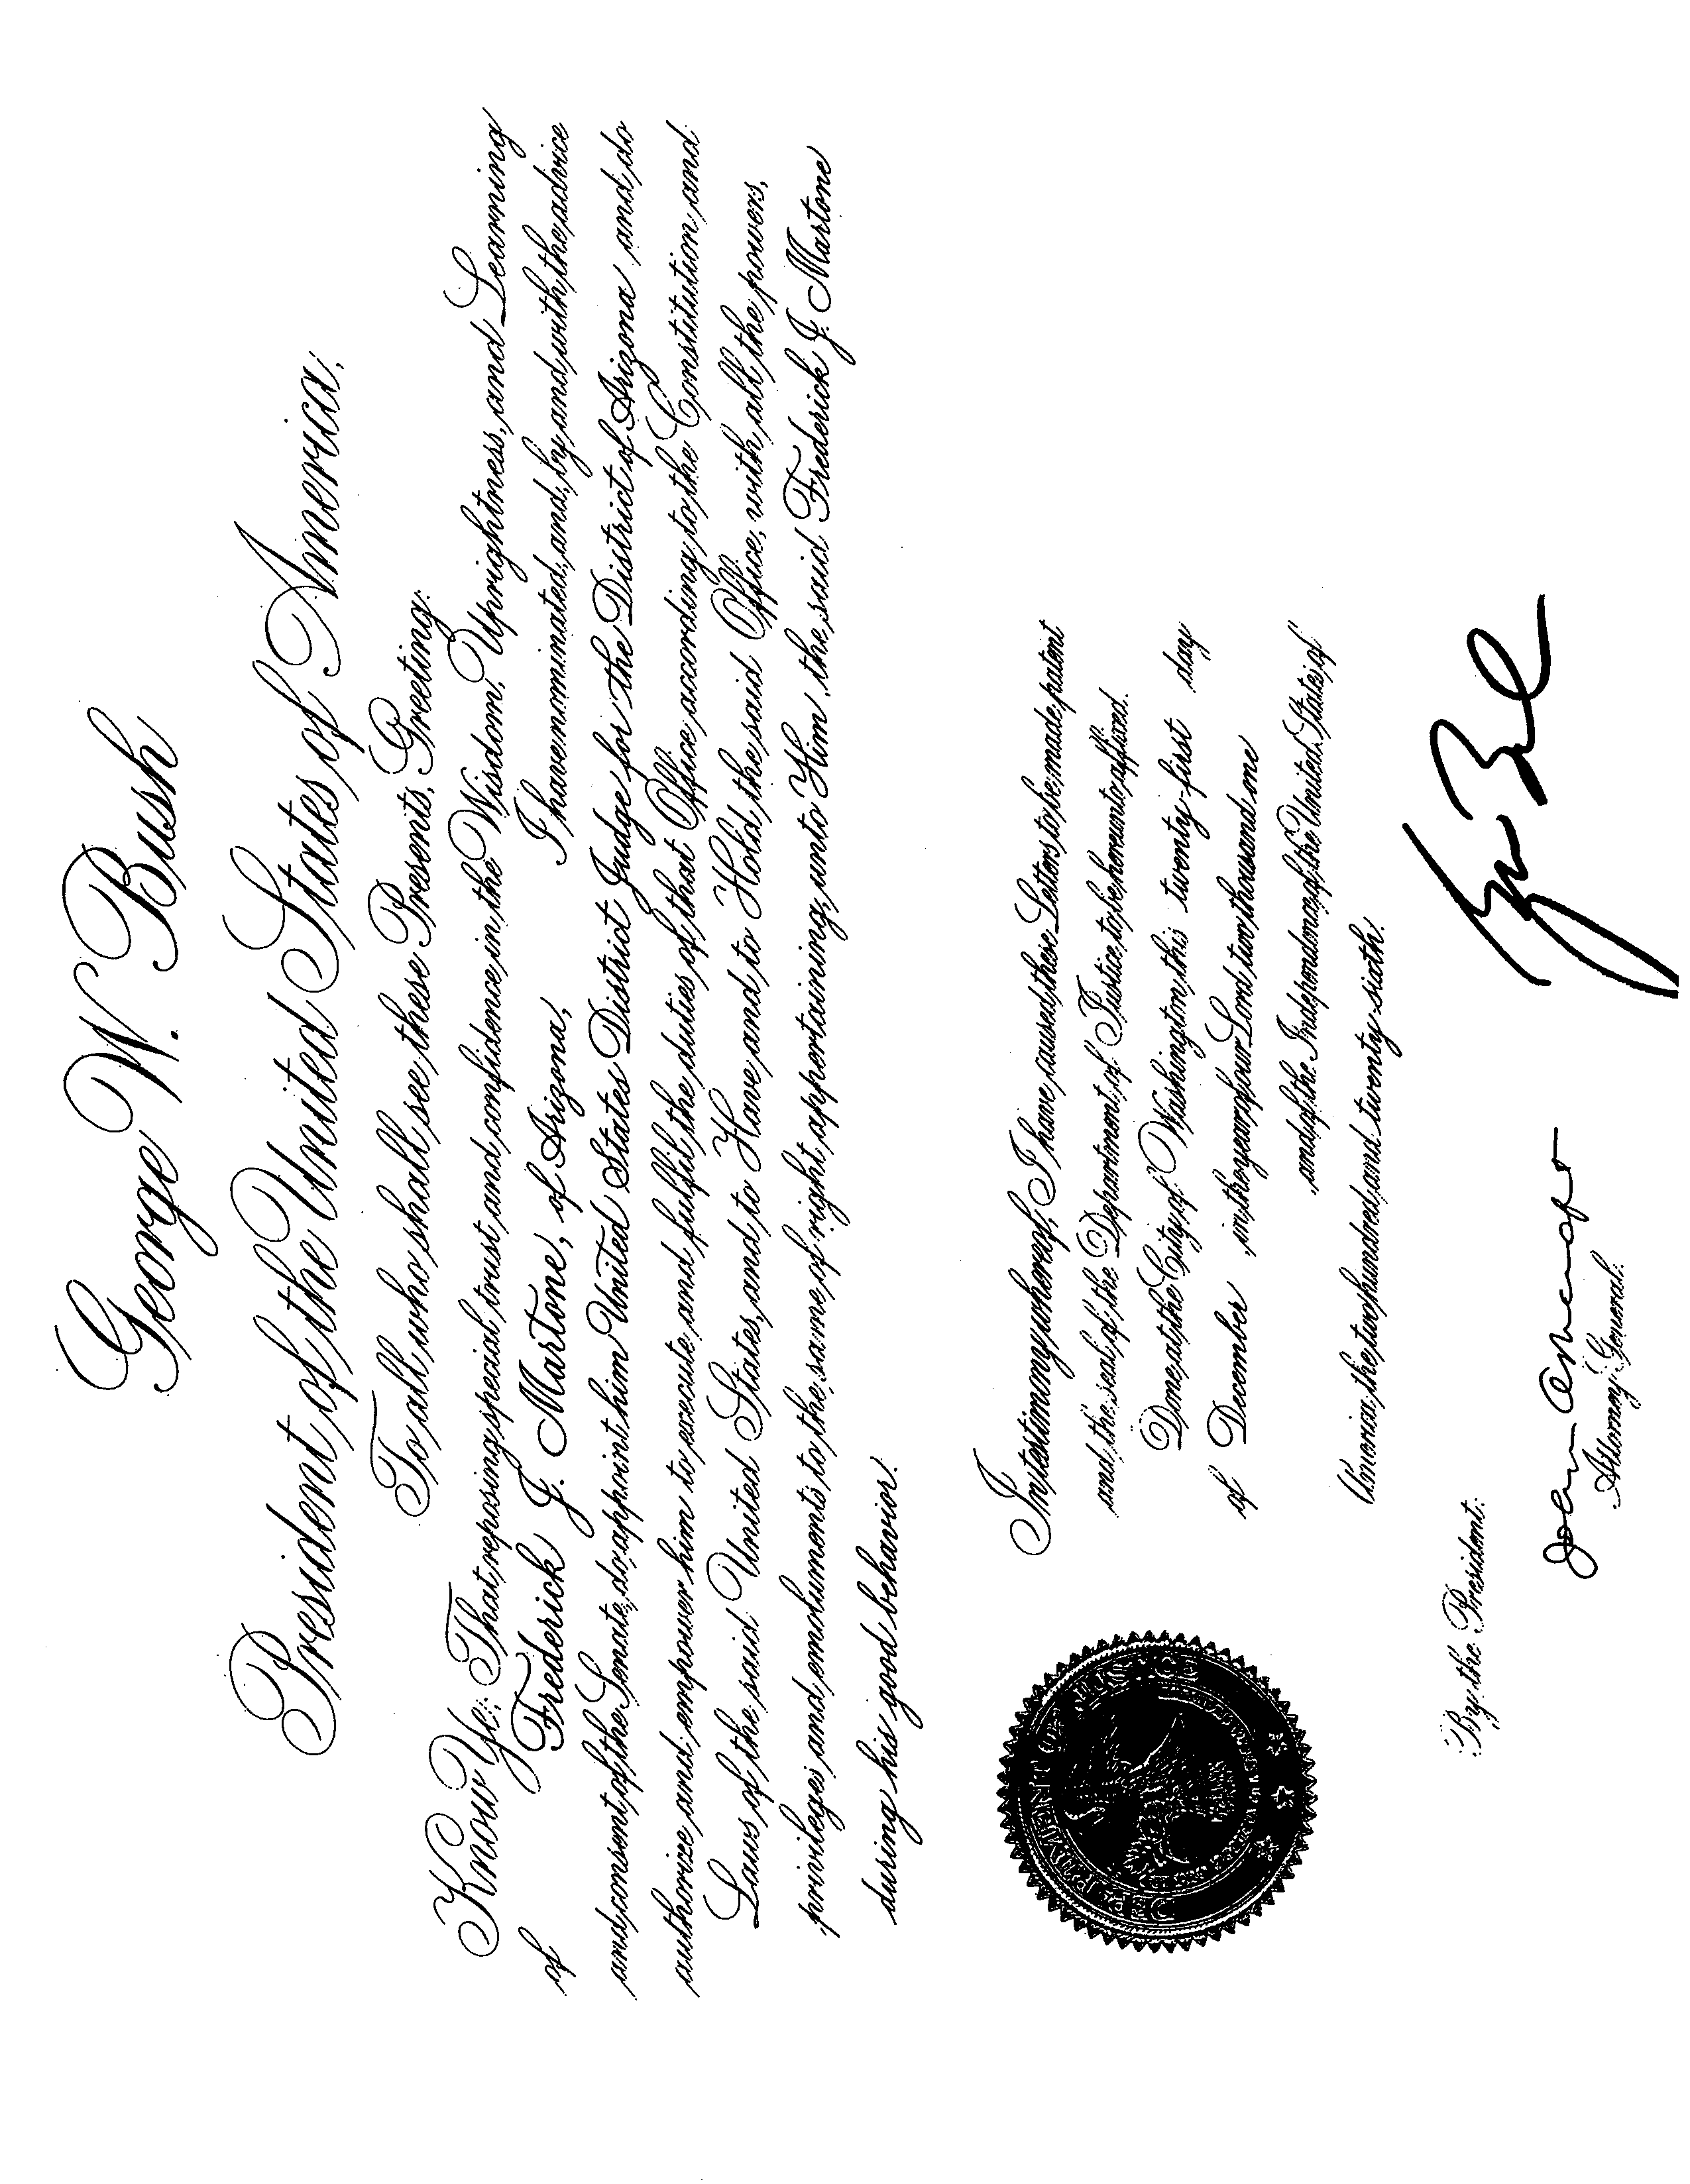 George W. Bush
President of the United States of America.
To all who shall see these Presents, Greeting:
Know Ye; That reposing special trust and confidence in the Wisdom, Uprightness, and Learning
of Frederick J. Martone, of Arizona, I have nominated, and, by and with the advice
and consent of the Senate, do appoint him United States District Judge for the District of Arizona and do
authorize and empower him to execute and fulfil the duties of that Office according to the Constitution and
Laws of the said United States, and to Have and to Hold the said Office, with all the powers,
privileges and emoluments to the same of right appertaining, unto Him, the said Frederick J. Martone
during his good behavior.
In testimony whereof, I have caused these Letters to be made patent
and the seal of the Department of Justice to be hereunto affixed.
Done at the City of Washington this twenty-first day
of December in the year of our Lord two thousand one
and of the Independence of the United States of
America the two hundred and twenty-sixth.
By the President:
Attorney General.
DEPARTMENT OF JUSTICE